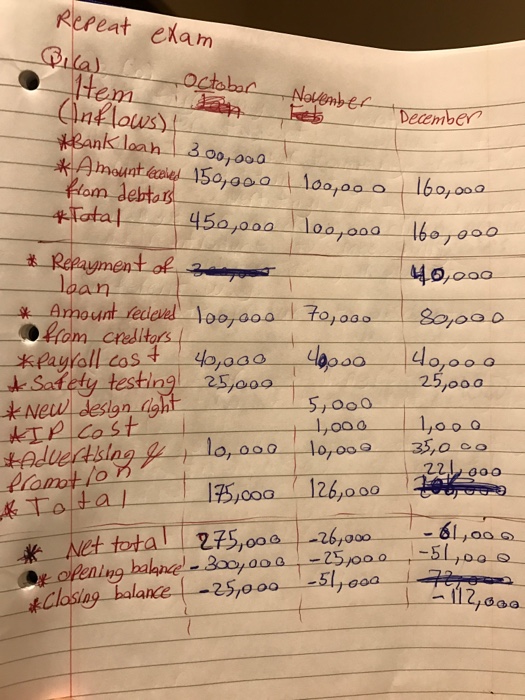 Repeat exam
Q1(a)
Item October November
(Inflows) December
*Bank loan 300,000
*Amount received 150,000 100,000 160,000
from debtors
*Total 450,000 100,000 160,000
* Repayment of 40,000
loan
* Amount recieved 100,000 70,000 80,000
from creditors
*payroll cost 40,000 40,000 40,000
* Safety testing 25,000 25,000
*New design right 5,000
*IP cost 1,000 1,000
*Advertising & 10,000 10,000 35,000
promotion 221,000
* Total 175,000 126,000
* Net total 275,000 -26,000 -61,000
* opening balance -300,000 -25,000 -51,000
*Closing balance -25,000 -51,000
-112,000